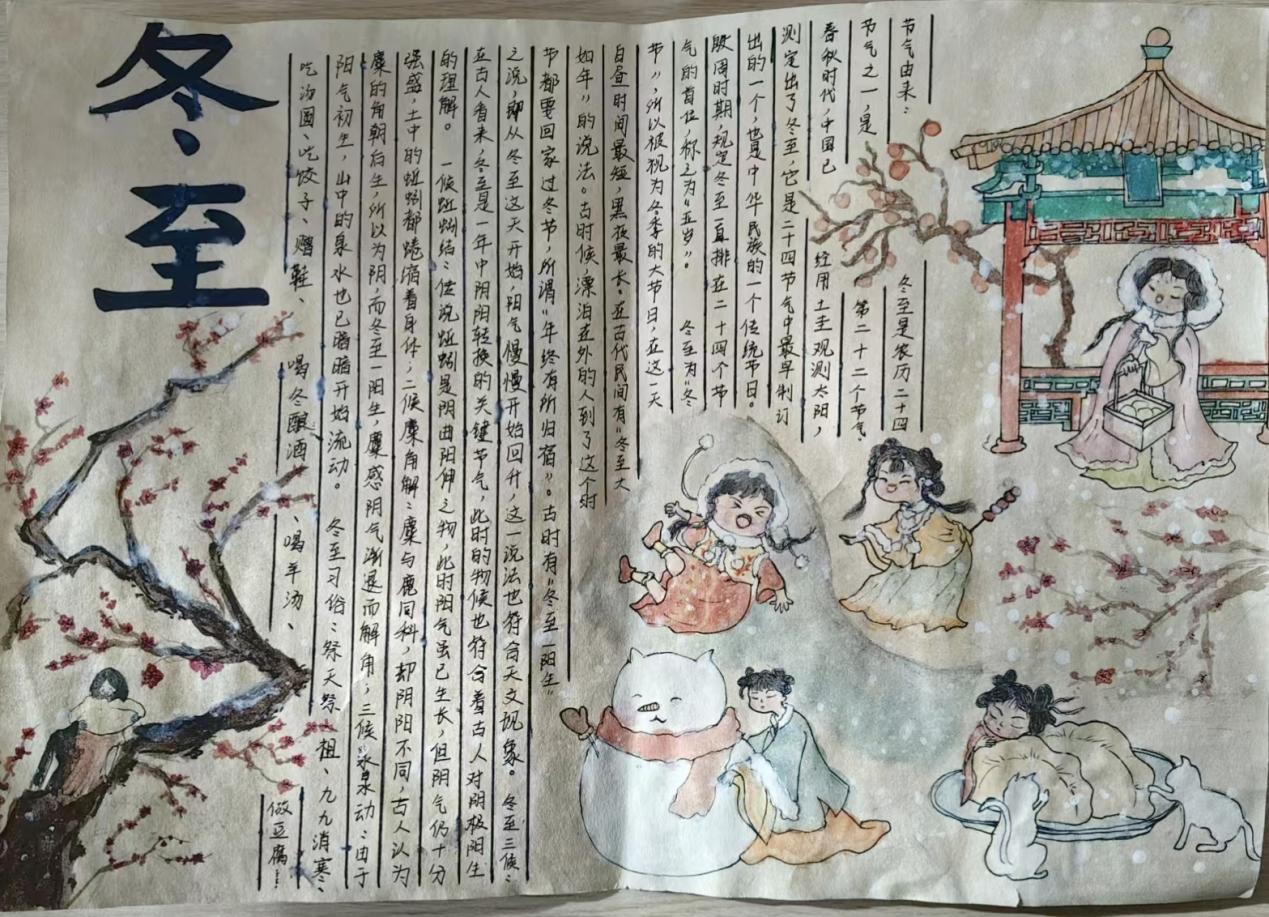 冬至
节气由来： 冬至是农历二十四
节气之一，是 第二十二个节气
春秋时代，中国已 经用土圭观测太阳，
测定出了冬至，它是二十四节气中最早制订
出的一个，也是中华民族的一个传统节日。
殷周时期，规定冬至一直排在二十四个节
气的首位，称之为“五岁”。 冬至为“冬
节”，所以被视为冬季的大节日，在这一天
白昼时间最短，黑夜最长。在古代民间有“冬至大
如年”的说法。古时候，漂泊在外的人到了这个时
节都要回家过冬节，所谓“年终有所归宿”。古时有“冬至一阳生”
之说，即从冬至这天开始，阳气慢慢开始回升，这一说法也符合天文现象。 冬至三候：
在古人看来，冬至是一年中阴阳转换的关键节气，此时的物候也符合着古人对阴极阳生
的理解。 一候蚯蚓结：传说蚯蚓是阴曲阳伸之物，此时阳气虽已生长，但阴气仍十分
强盛，土中的蚯蚓都蜷缩着身体，二候麋角解：麋与鹿同科，却阴阳不同，古人认为
麋的角朝后生，所以为阴，而冬至一阳生，麋感阴气渐退而解角，三候水泉动：由于
阳气初生，山中的泉水也已暗暗开始流动。 冬至习俗：祭天祭祖、九九消寒、
吃汤圆、吃饺子、赠鞋、 喝冬酿酒、喝羊汤、
做豆腐！